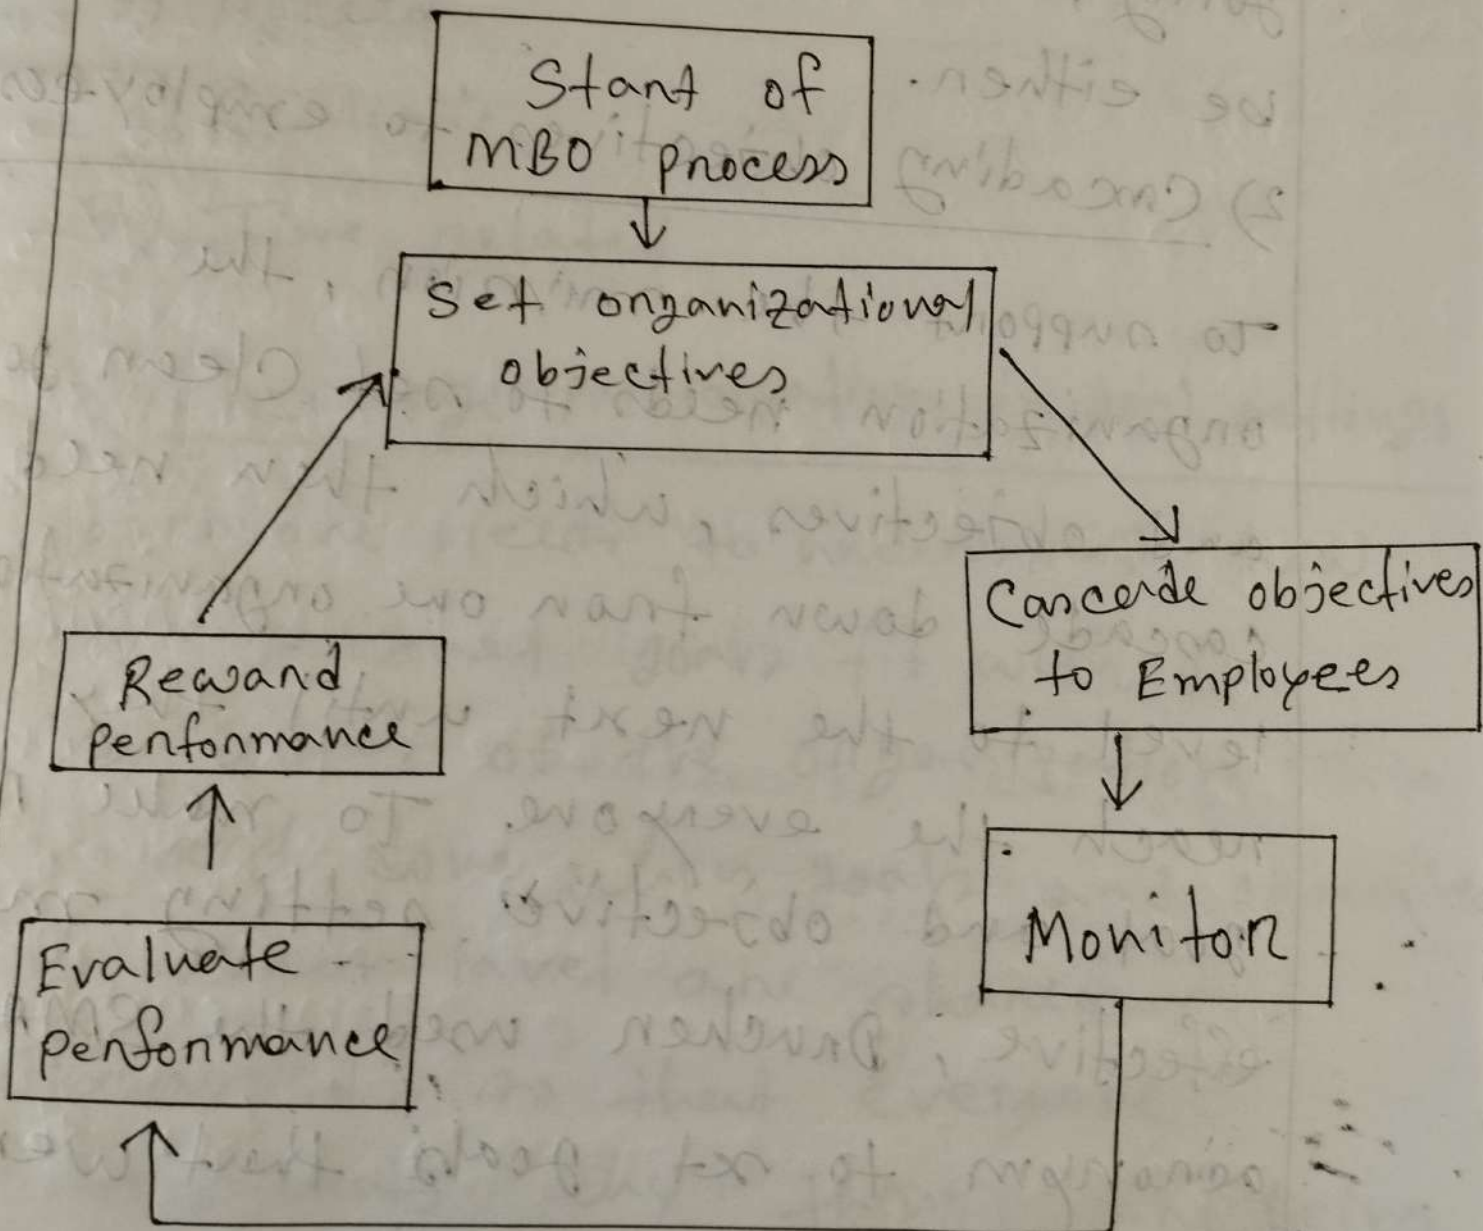 Start of
MBO process
Set organizational
objectives
Cascade objectives
to Employees
Monitor
Evaluate
performance
Reward
performance